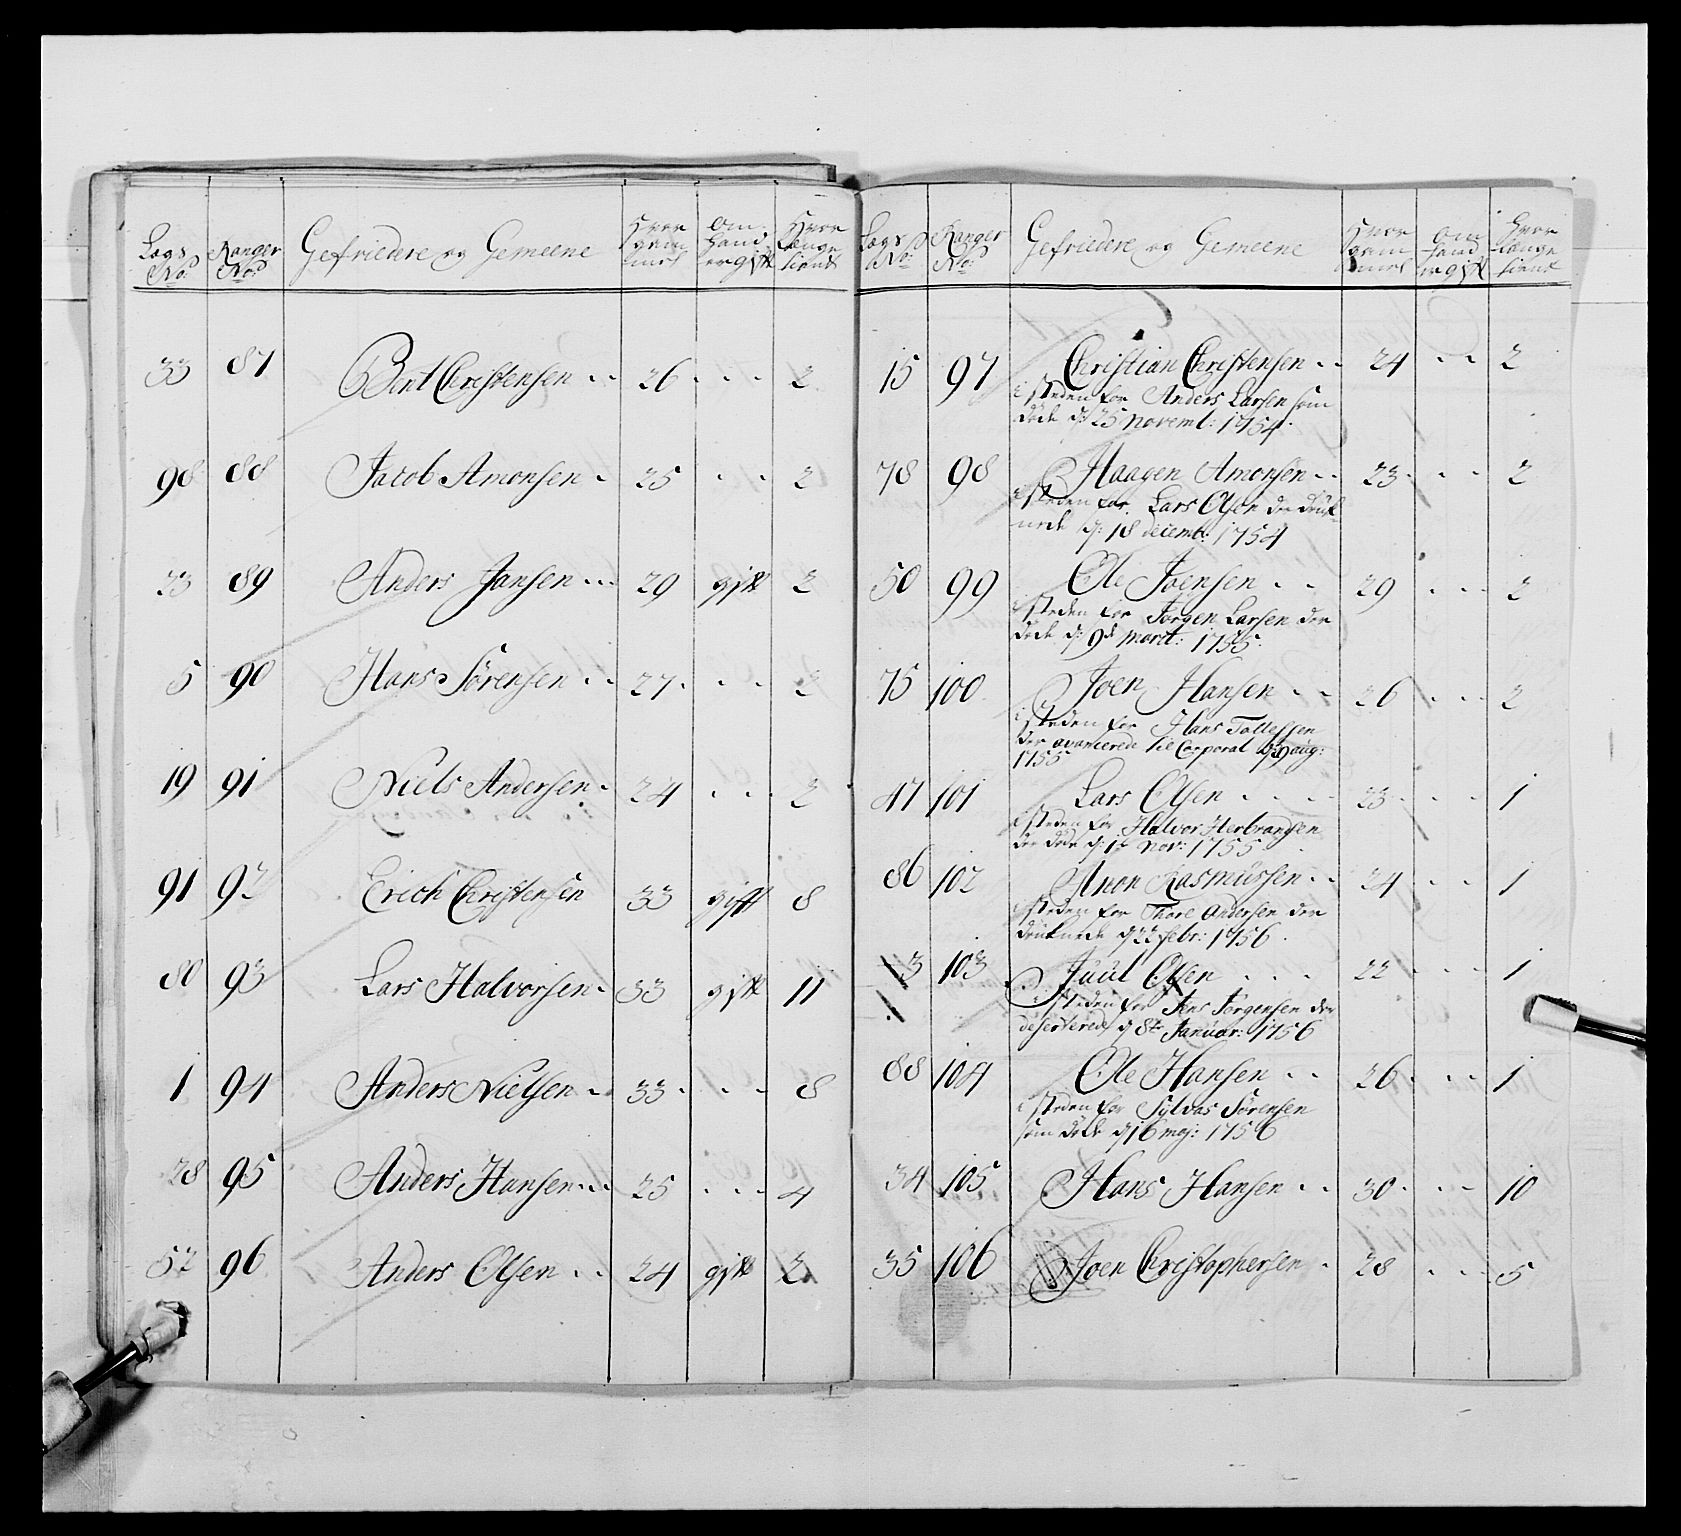 Lægs No: Ranger No: Gefriedere og Gemeene Hvor gam mel om hand er gift Hvor længe tient
33 87 Bent Christensen 26 2
98 88 Jacob Amonsen 25 2
23 89 Anders Jansen 29 gift 2
5 90 Hans Sörensen 27 2
19 91 Niels Andersen 24 2
91 92 Erich Christensen 33 gift 8
80 93 Lars Halvorsen 33 gift 11
1 94 Anders Nielsen 33 8
28 95 Anders Hansen 25 4
52 96 Anders Olsen 24 gift 2
Lægs No: Ranger No: Gefriedere og Gemeene Hvor gam mel om hand er gift Hvor længe tient
15 97 Christian Christensen 24 2
i steden for Anders Larsen som
döde d: 25 Novemb: 1754.
78 98 Haagen Amonsen 23 2
i steden for Lars Olsen der druk
nede d: 18 decemb: 1754
50 99 Ole Joensen 29 2
i steden for Jörgen Larsen der
döde d: 9de Mart: 1755.
75 100 Joen Hansen 26 2
i steden for Hans Tollefsen
der avancerede til Corporal d: 29 aug:
1755
47 101 Lars Olsen 23 1
i steden for Halvor Herbransen
der döde d: 1 Nov: 1755
86 102 Anon Rasmussen 24 1
i steden for Thore Andersen der
druknede d 22 febr: 1756.
3 103 Juul Olsen 22 1
i steden for Jens Jörgensen der
deserterede d 8t Januar: 1756
88 104 Ole Hansen 26 1
i steden for Sylvas Sörensen
som döde d 16 maj: 1756
34 105 Hans Hansen 30 10
35 106 Joen Christophersen 28 5